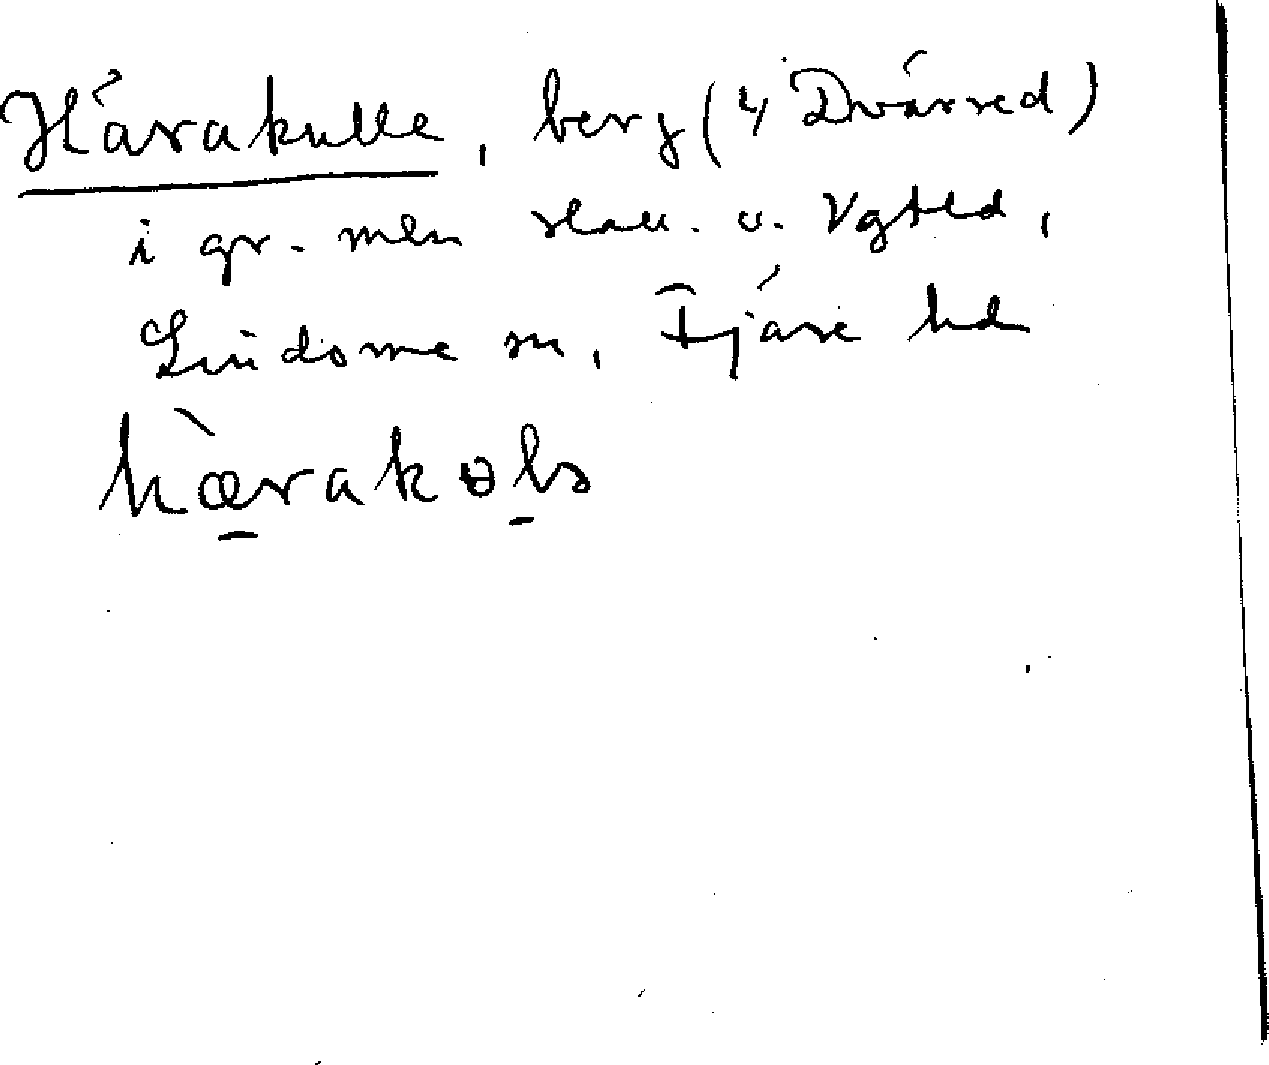 Härakulle, berg (4 Dvärred)
i gr. mln Hall. o. Vgtld,
Lindome sn, Fjäre hd
hærakolə